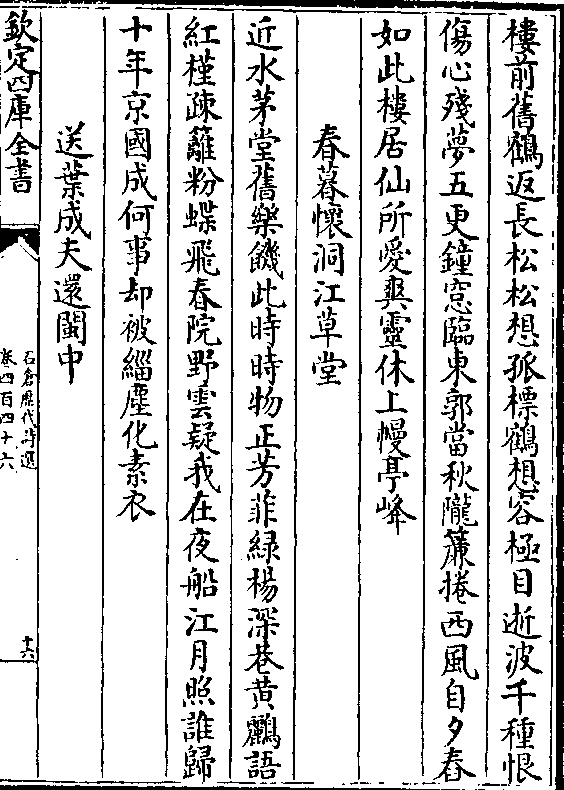 樓前舊鶴返長松松想孤標鶴想容極目逝波千種恨
傷心殘夢五更鐘窓臨東郭當秋隴簾捲西風自夕舂
如此樓居仙所愛奭靈休上幔亭峰
春暮懷洞江草堂
近水茅堂舊樂饑此時時物正芳菲綠楊深巷黃鸝語
紅槿疎籬粉蝶飛春院野雲疑我在夜船江月照誰歸
十年京國成何事却被緇塵化素衣
送葉成夫還閩中
欽定四庫全書
石倉歷代詩選
卷四百四十六
十六